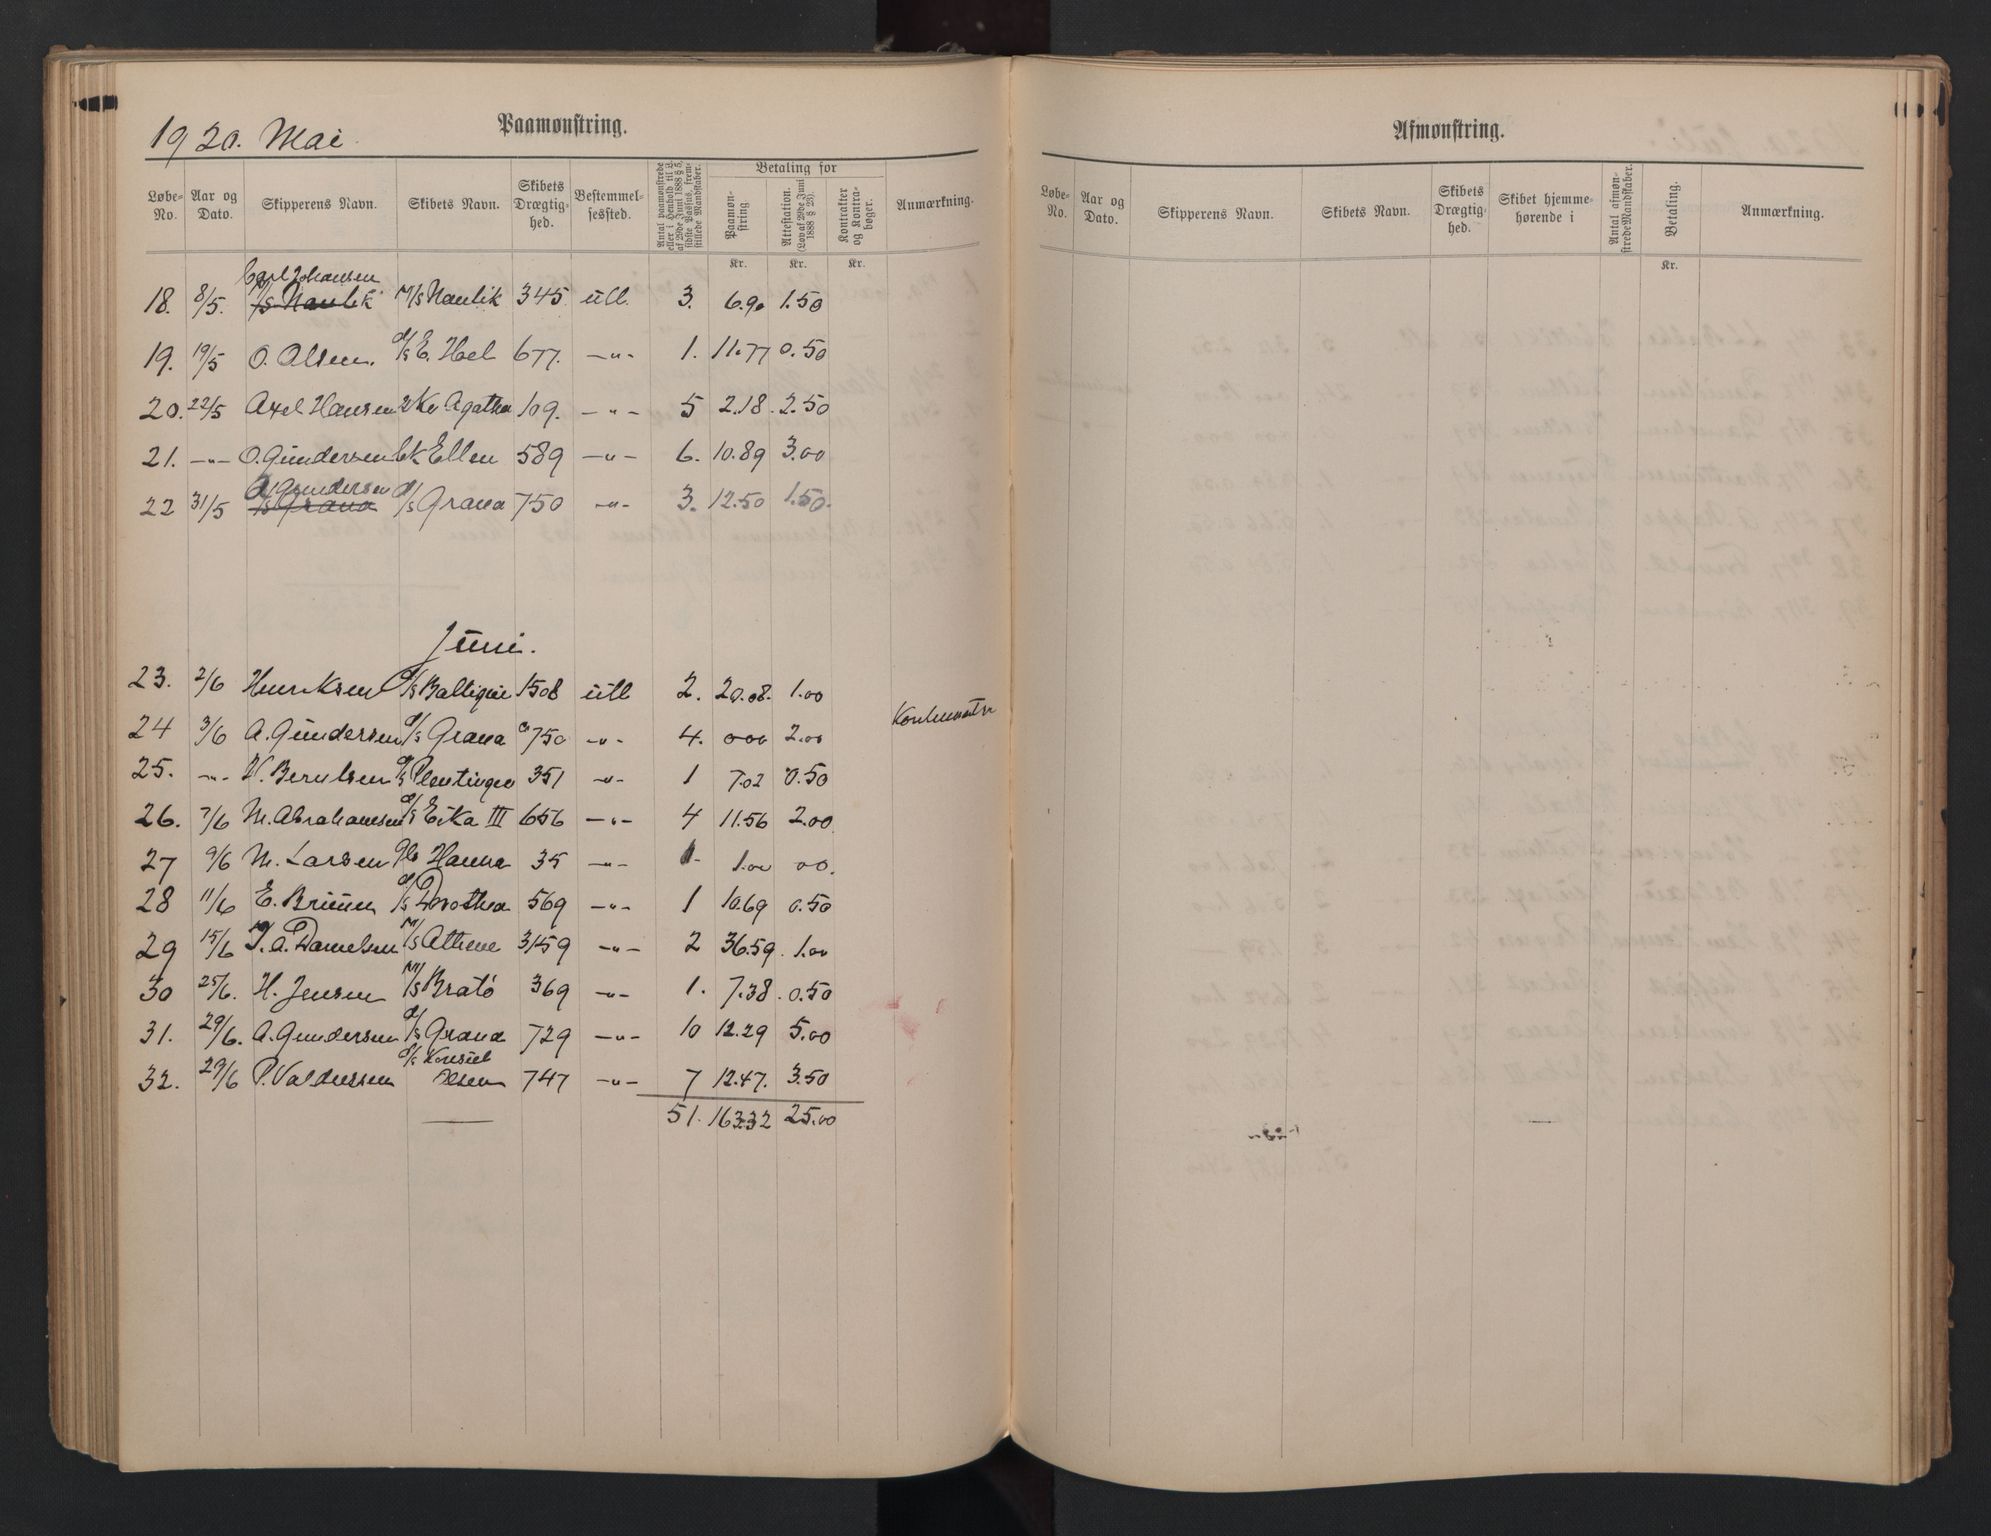 1920. Mai
Paamønstring.
Løbe-No.	Aar og Dato.	Skipperens Navn.	Skibets Navn.	Skibets Drægtighed.	Bestemmelsessted.	Antal paamønstrede eller i Henhold til § af 29de Juni 1888 § 5, sidste Passus, fremstillede Mandskaber.	Betaling for	Paamønstring.	Attestation. (Lov af 29de Juni 1888 § 23).	Kontrakter og Kontrabøger.	Anmærkning.
Kr.	Kr.	Kr.
Carl Johansen
18.	8/5.	M/s Nautik	M/s Nautik	345	utl.	3.	6.90	1.50
19.	19/5	O. Olsen.	d/s E. Hoel	677.	—"—	1.	11.77	0.50
20.	22/5	Axel Hansen	Agatha	109.	—"—	5	2.18.	2.50
21.	—"—	O. Gundersen	Ellen	589	—"—	6.	10.89	3.00
A. Gundersen
22	31/5	d/s Grana	d/s Grana	750	—"—	3.	12.50	1.50.
Juni.
23.	2/6	Henriksen	d/s Baltique	1508	utl	2.	20.08.	1.00
24	3/6	A. Gundersen	d/s Grana	750	—"—	4.	000	2.00
25.	—"—	Berntsen	d/s	351	—"—	1	7.02	0.50
26.	7/6	M. Abrahamsen	d/s Eika III	656	—"—	4	11.56	2.00
27	9/6	M. Larsen	Hanna	35	—"—	1.	1.00	00.
28	11/6	E. Bruun	d/s Dorothea	569	—"—	1	10.69	0.50
29	15/6	A. Danielsen	M/s Athene	3159	—"—	2	36.59.	1.00
30	25/6.	H. Jensen	M/s Bratö	369	—"—	1.	7.38.	0.50
31.	29/6.	A. Gundersen	d/s Grana	729	—"—	10	12.29	5.00
32.	29/6	P. Valdersen	d/s Konsul Olsen	747	—"—	7	12.47.	3.50
51.	163.32	25.00
Afmønstring.
Løbe-No.	Aar og Dato.	Skipperens Navn.	Skibets Navn.	Skibets Drægtighed.	Skibet hjemmehørende i	Antal afmønstrede Mandskaber.	Betaling.	Anmærkning.
Kr.